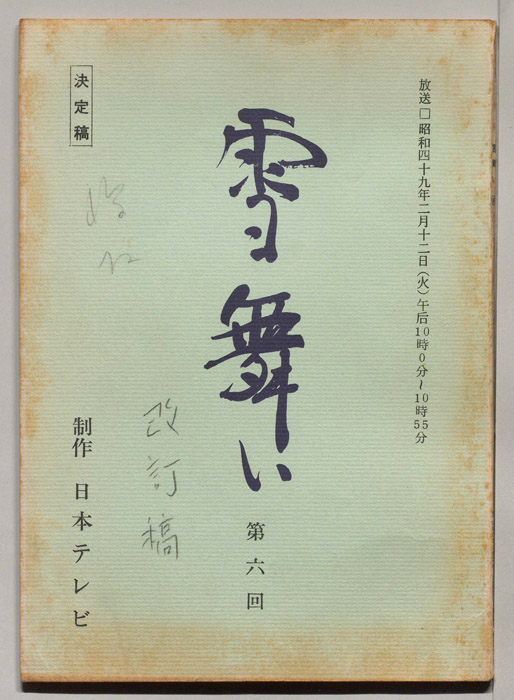 放送□昭和四十九年二月十二日(火)午后10時0分〜10時55分
雪舞い
第六回
改訂稿
決定稿
制作 日本テレビ